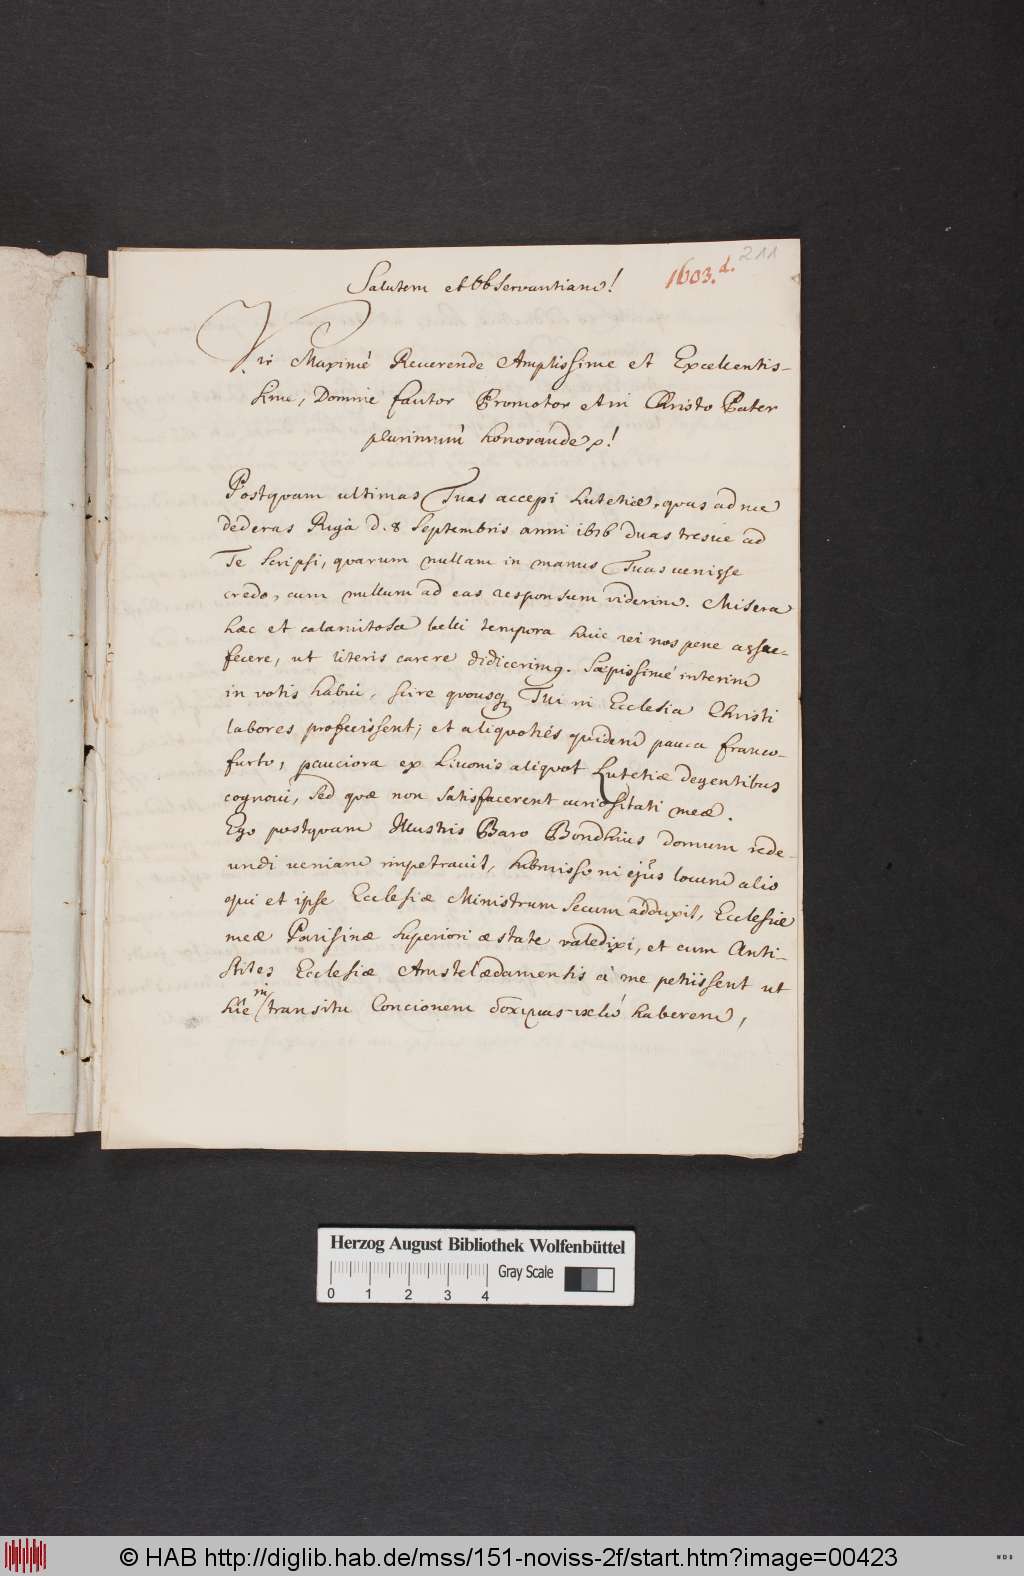 211
1603.d.
Salutem et Observantiam!
Vir Maximè Reverende Amplissime et Excellentis-
sime, Domine fautor Promotor et in Christo Pater
plurimùm honorande!
Postquam ultimas Tuas accepi Lutetiæ, quas ad me
dederas Rigâ d. 8 Septembris anni 1676 duas tresve ad
Te scripsi, quarum nullam in manus Tuas venisse
credo, cum nullum ad eas responsum viderim. Misera
hæc et calamitosa belli tempora huic rei nos pene assue-
fecere, ut literis carere didicerimq. Sæpissimè interim
in votis habui, scire quousq Tui in Ecclesia Christi
labores profecissent; et aliquotiés quidem pauca Franco-
furto, pauciora ex Livonis aliquot Lutetiæ degentibus
cognovi, sed quæ non satisfacerent curiositati meæ.
Ego postquam Illustris Baro Bondhius domum rede-
undi veniam impetravit, submisso in ejus locum alio
qui et ipse Ecclesiæ Ministrum secum adduxit, Ecclesiæ
meæ Parisinæ superiori æstate valedixi, et cum Anti-
stites Ecclesiæ Amstelædamensis à me petiissent ut
hîc in transitu Concionem haberem,
Herzog August Bibliothek Wolfenbüttel
Gray Scale
0 1 2 3 4
© HAB http://diglib.hab.de/mss/151-noviss-2f/start.htm?image=00423